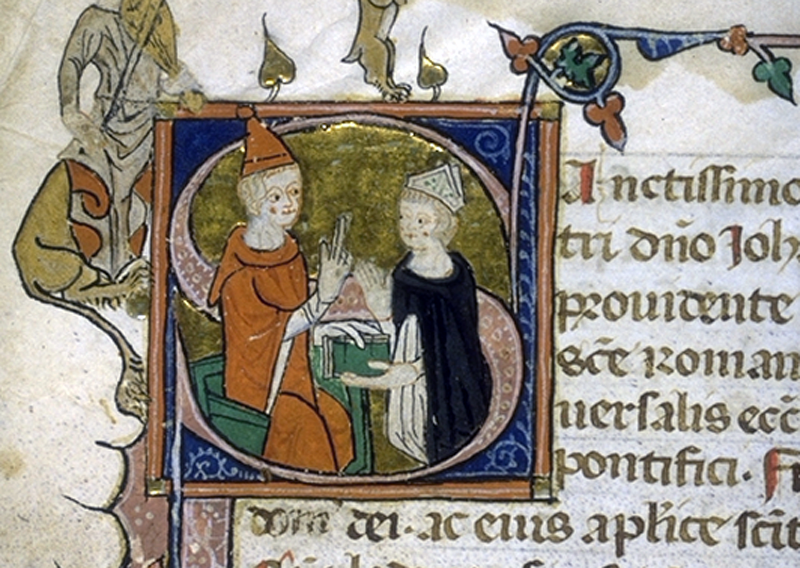 Anctissimo
tri dño Joh
prouidente
sc̃e roman
uersalis ecc
pontifici. Fr
dom̃ dei. ac eius apl̃ice